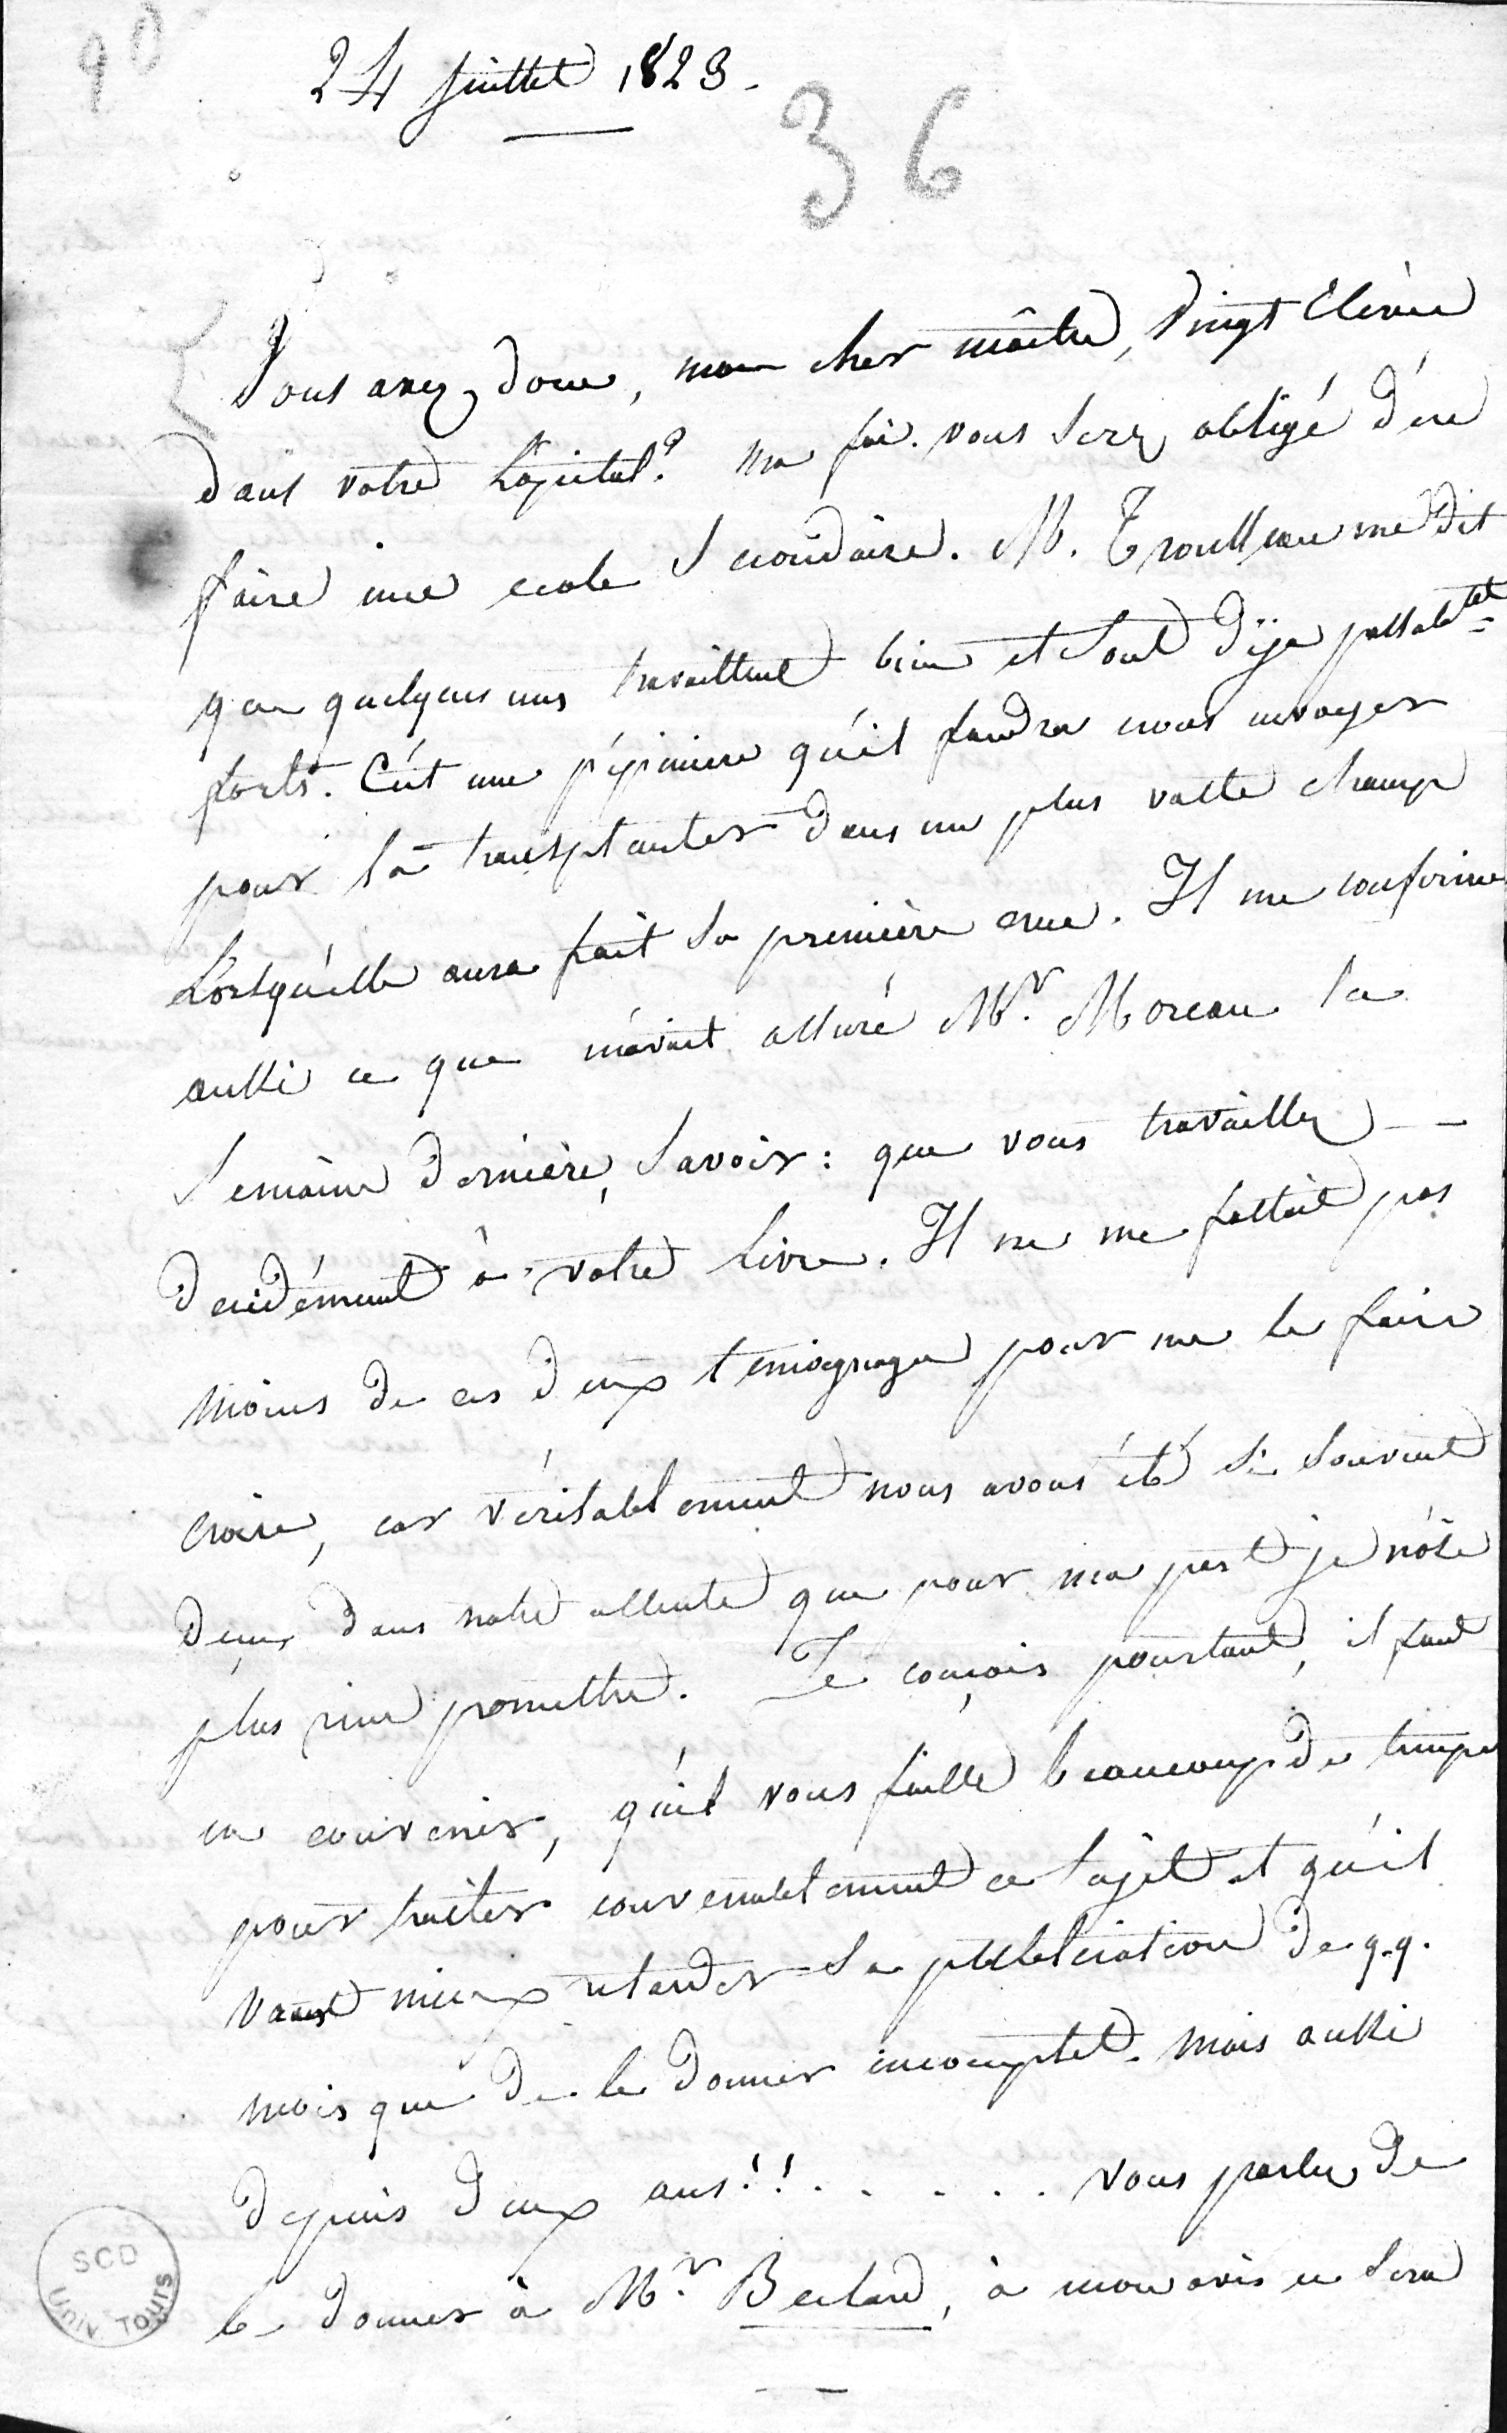 90
24 juillet 1823.
36
Vous avez donc, mon cher maître, vingt élèves
dans votre hôpital? ma foi. vous serez obligé d'en
faire une ecole secondaire. M. Trousseau me dit
que quelques uns travaillent bien et sont déja passablet
forts. C'est une pépiniere qu'il faudra nous envoyer
pour la transplanter dans un plus vaste champ
Lorsqu'elle aura fait sa première crue. Il me confirme
aussi ce que m'avait assuré Mr. Moreau la
semaine dernière, savoir: que vous travaillez
decidément à votre livre. Il ne me fallait pas
moins de ces deux temoignages pour me le faire
croire, car véritablement nous avons été si souvent
deçus dans notre attente que pour ma part je n'ose
plus rien promettre. Je conçois pourtant, il faut
en convenir, qu'il vous faille beaucoup de temps
pour traiter convenablement ce sujet et qu'il
vaut mieux retarder sa publication de q.q.
mois que de le donner incomplet. mais aussi
depuis deux ans!! . . . . . vous parlez de
le donner à Mr. Beclard, à mon avis ce sera
SCD
Univ. TOURS